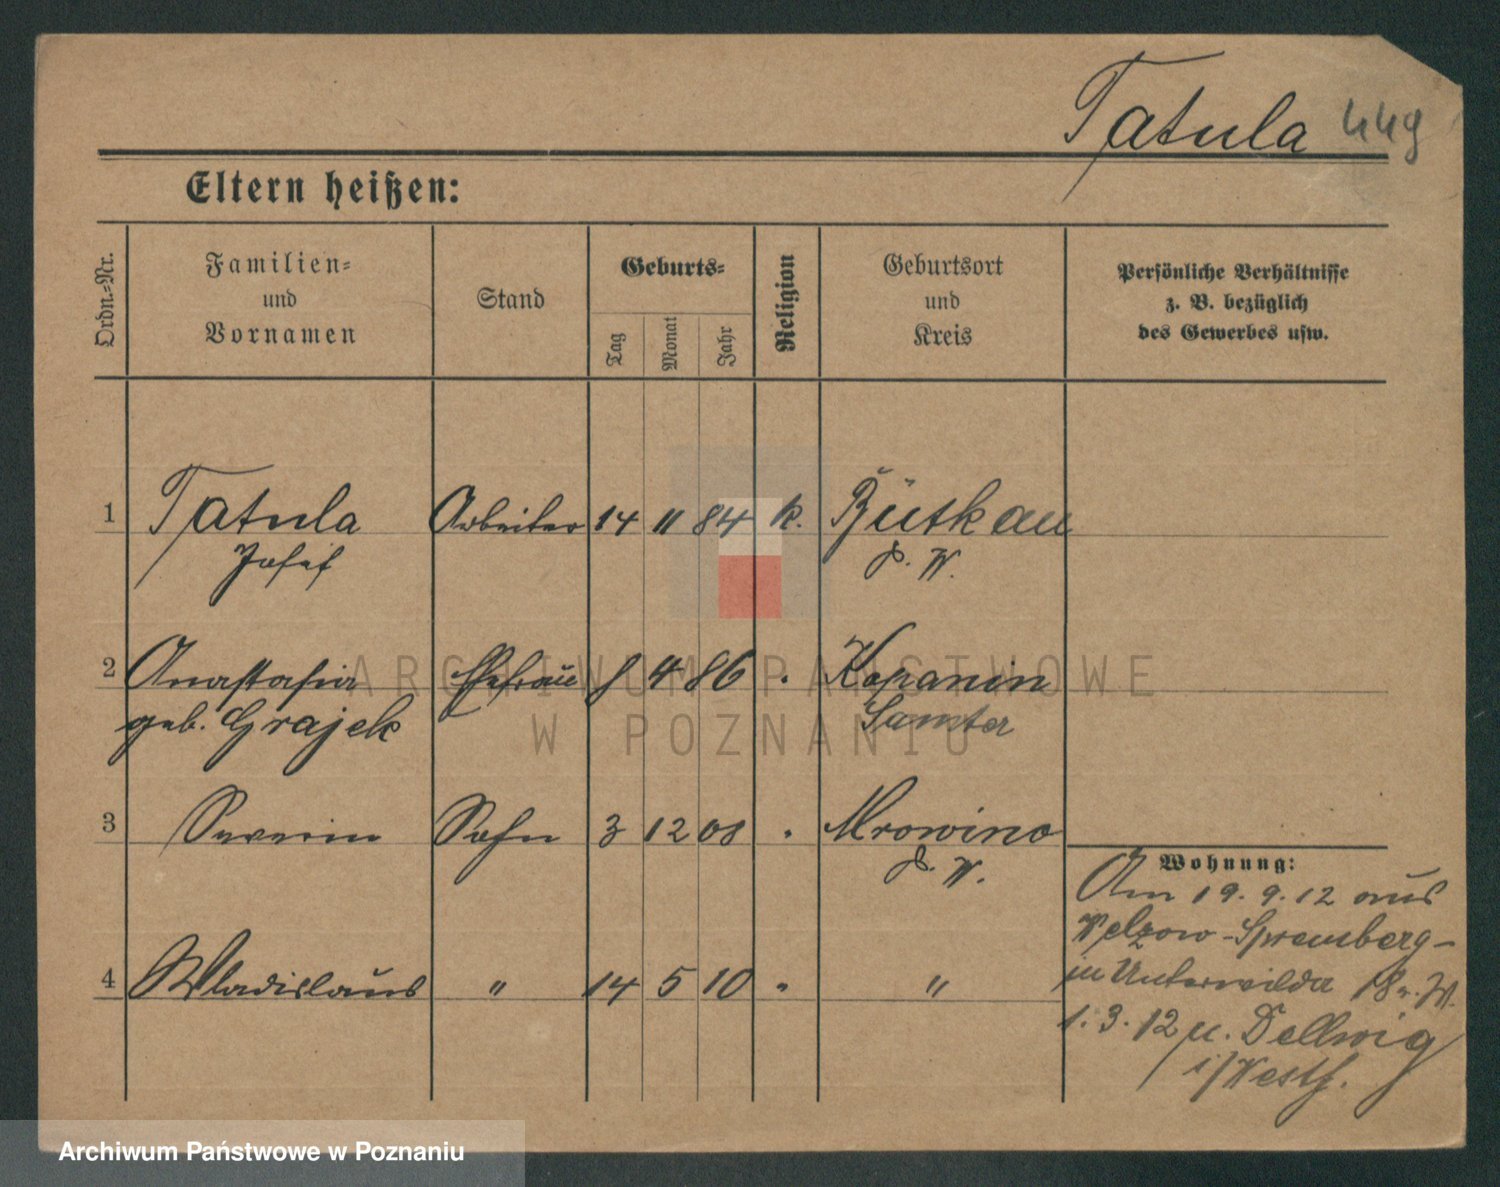 Tatula 449
Eltern heißen:
Ordn.-Nr.
Familien-
und
Vornamen
Stand
Geburts-
Tag
Monat
Jahr
Religion
Geburtsort
und
Kreis
Persönliche Verhältnisse
z. B. bezüglich
des Gewerbes usw.
1 Tatula Arbeiter 14 11 84 k.
Josef P. W.
2 Anastasia Ehefrau 8 4 86 " Kopanin
geb. Grajek Samter
3 Severin Sohn 3 12 08 " Mrowino
P. W.
Wohnung:
Am 19.9.12 aus
Welzow-Spremberg-
in Unterwilda
4 Wladislaus " 14 5 10 " "
1.3.12 u. Dellwig
i/Westf.
ARCHIWUM PAŃSTWOWE
W POZNANIU
Archiwum Państwowe w Poznaniu